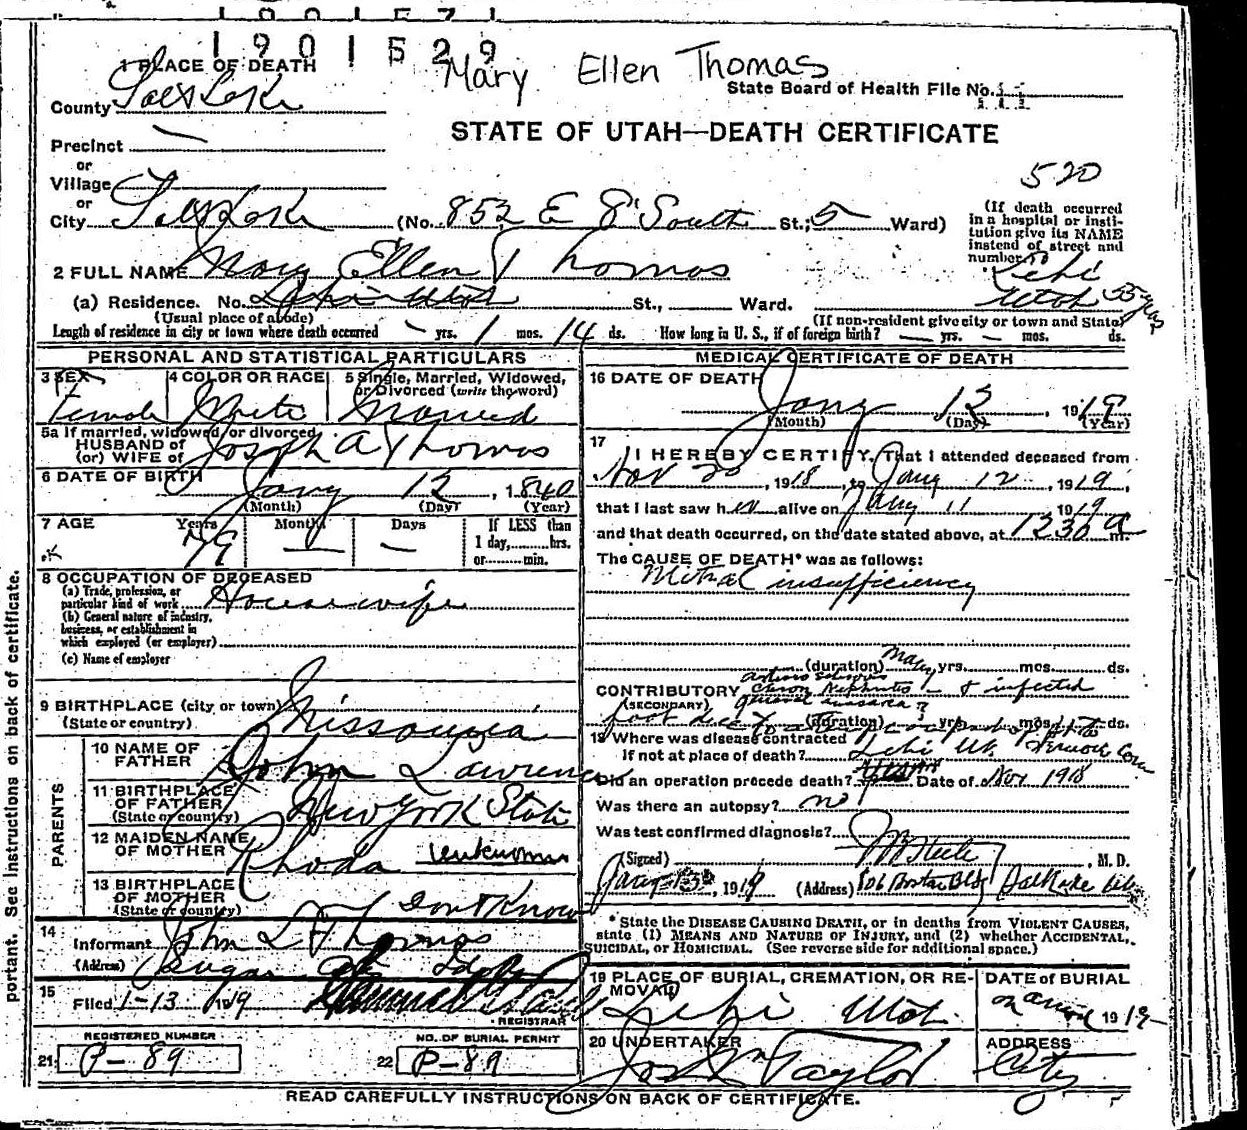 1901529
Mary Ellen Thomas
1 PLACE OF DEATH
State Board of Health File No.
County Salt Lake
STATE OF UTAH—DEATH CERTIFICATE
Precinct
or
Village
520
or
City Salt Lake (No. 852 E 8" South St.; 5 Ward)
(If death occurred in a hospital or institution give its NAME instead of street and number)
2 FULL NAME Mary Ellen Thomas
Lehi
(a) Residence. No. Lehi Utah St., Ward. Utah 55 yrs
(Usual place of abode) (If non-resident give city or town and State)
Length of residence in city or town where death occurred - yrs. 1 mos. 14 ds. How long in U. S., if of foreign birth? — yrs. — mos. ds.
PERSONAL AND STATISTICAL PARTICULARS
3 SEX Female
4 COLOR OR RACE White
5 Single, Married, Widowed, or Divorced (write the word) Married
5a If married, widowed, or divorced
HUSBAND of
(or) WIFE of Joseph A Thomas
6 DATE OF BIRTH Jany 12, 1840
(Month) (Day) (Year)
7 AGE Years Months Days If LESS than
79 — — 1 day, hrs.
or min.
8 OCCUPATION OF DECEASED
(a) Trade, profession, or
particular kind of work Housewife
(b) General nature of industry,
business, or establishment in
which employed (or employer)
(c) Name of employer
9 BIRTHPLACE (city or town)
(State or country) Missouria
PARENTS
10 NAME OF
FATHER John Lawrence
11 BIRTHPLACE
OF FATHER
(State or country) New York State
12 MAIDEN NAME
OF MOTHER Rhoda unknown
13 BIRTHPLACE
OF MOTHER
(State or country) Dont Know
14
Informant John L Thomas
(Address) Sugar City Idaho
15
Filed 1-13 1919
REGISTRAR
REGISTERED NUMBER
21 P-89
NO. OF BURIAL PERMIT
22 P-89
MEDICAL CERTIFICATE OF DEATH
16 DATE OF DEATH
Jany 13, 1919
(Month) (Day) (Year)
17
I HEREBY CERTIFY, That I attended deceased from
Nov 1918, to Jany 12, 1919,
that I last saw her alive on Jany 11 1919
and that death occurred, on the date stated above, at 1230 a m.
The CAUSE OF DEATH* was as follows:
Mitral insufficiency
(duration) many yrs. mos. ds.
arterio sclerosis
CONTRIBUTORY Chron Nephritis & infected
(SECONDARY) general anasarca
foot due to (duration) yrs. mos. ds.
18 Where was disease contracted
If not at place of death? Lehi Ut.
Did an operation precede death? Date of Nov 1918
Was there an autopsy? no
Was test confirmed diagnosis?
(Signed) Steele, M. D.
Jany 13, 1919 (Address) Boston Bldg Salt Lake City
*State the DISEASE CAUSING DEATH, or in deaths from VIOLENT CAUSES,
state (1) MEANS AND NATURE OF INJURY, and (2) whether ACCIDENTAL,
SUICIDAL, or HOMICIDAL. (See reverse side for additional space.)
19 PLACE OF BURIAL, CREMATION, OR REMOVAL
Lehi Utah
DATE OF BURIAL
1919
20 UNDERTAKER
Jos Wm Taylor
ADDRESS
City
READ CAREFULLY INSTRUCTIONS ON BACK OF CERTIFICATE.
portant. See instructions on back of certificate.